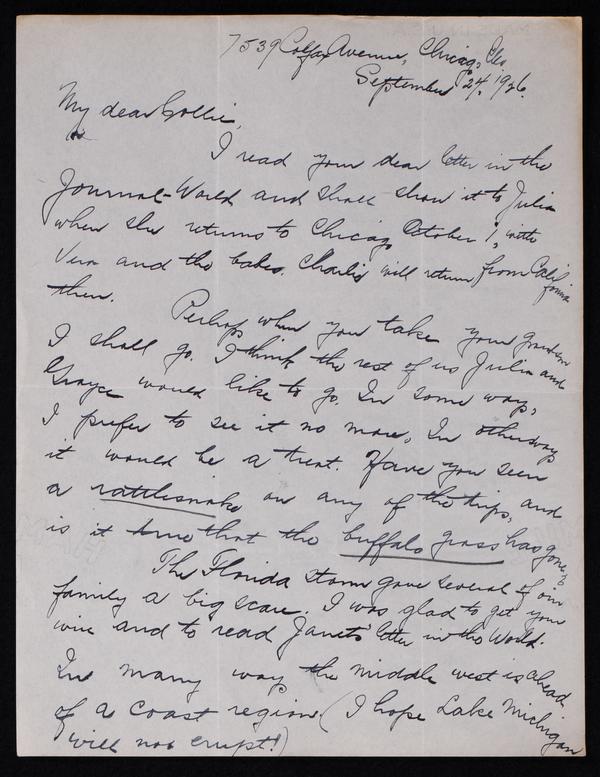 7539 Colfax Avenue, Chicago, Ills.
September 24, 1926.
My dear Gollie,
I read your dear letter in the
Journal-World and shall show it to Julia
when she returns to Chicago October 1, with
Vera and the babes. Charlie will return from California
then.
Perhaps when you take your grandson
I shall go. I think the rest of us Julia and
Grayce would like to go. In some ways,
I prefer to see it no more. In other ways
it would be a treat. Have you seen
a rattlesnake on any of the trips, and
is it true that the buffalo grass has gone?
The Florida storm gave several of our
family a big scare. I was glad to get your
wire and to read Janet's letter in the World.
In many ways the middle west is ahead
of a coast region. (I hope Lake Michigan
will not erupt!)